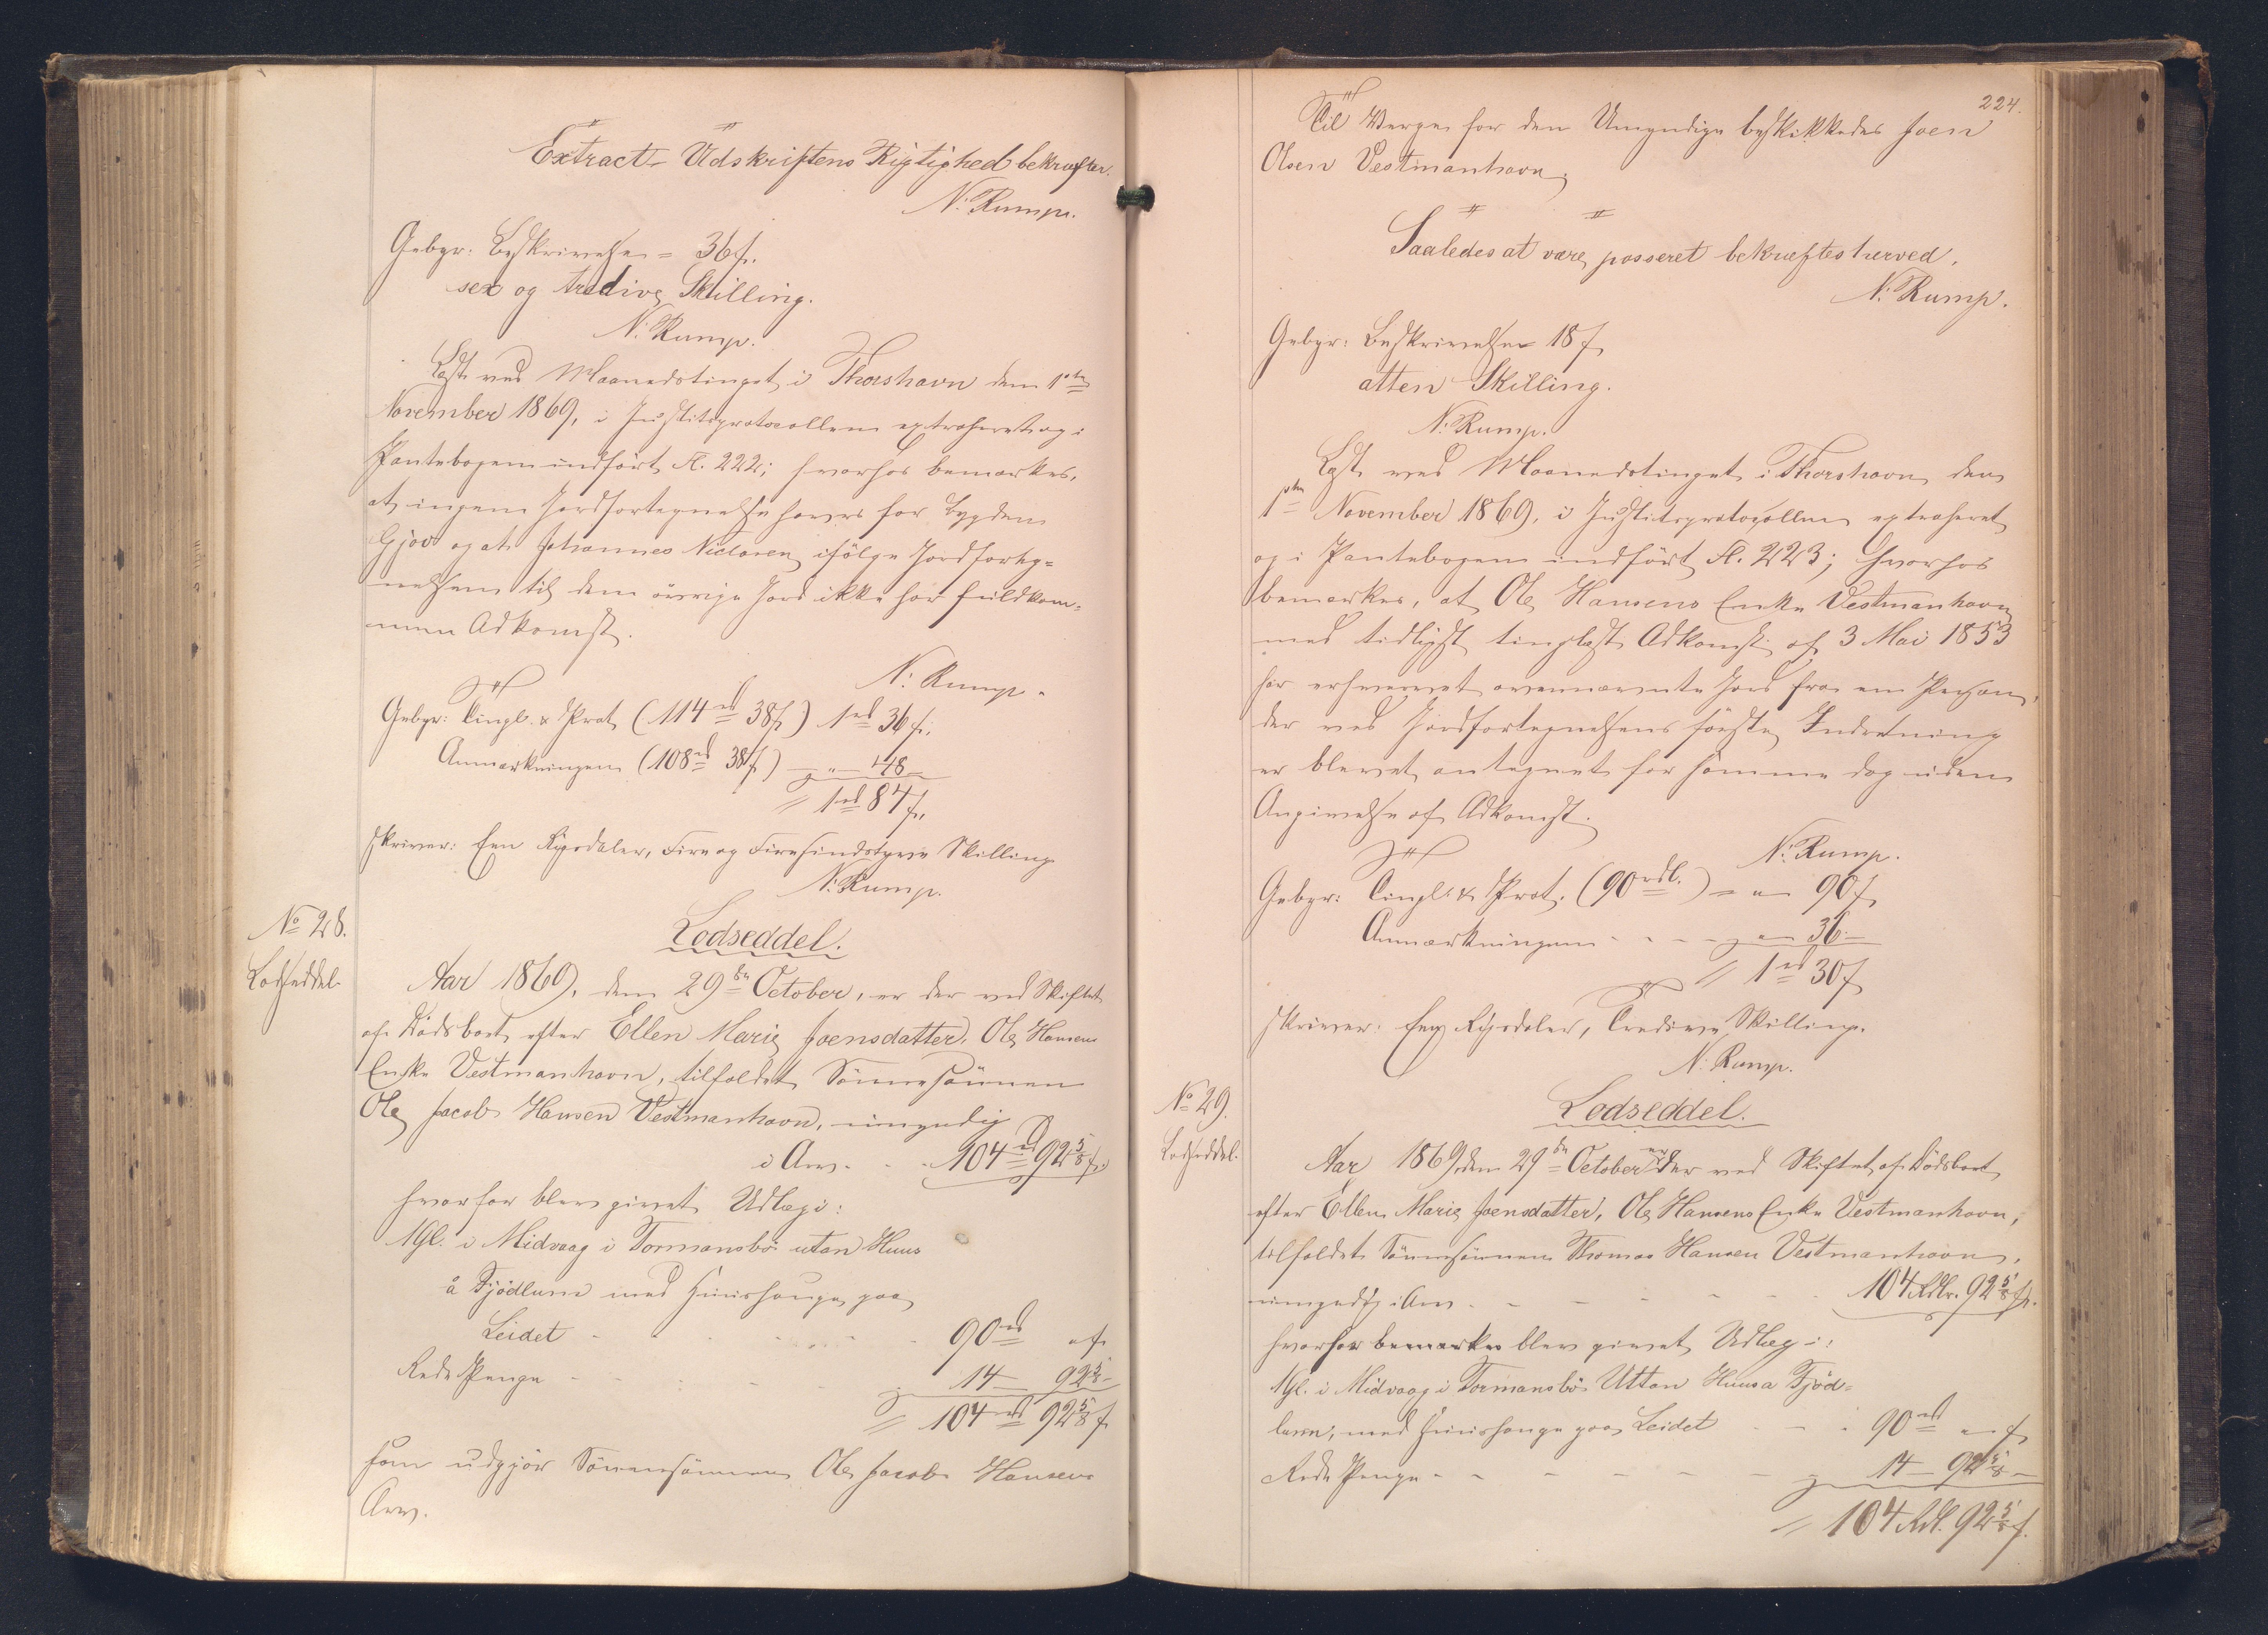 Extract-Udskriftens Rigtighed bekræfter.
N. Rump.
Gebyr: Beskrivelse = 36 s.
sex og tredive Skilling.
N. Rump.
Læst ved Maanedstinget i Thorshavn den 1ste
November 1869, i Justitsprotocollen extraheret og i
Pantebogen indført fl. 222; hvorhos bemærkes,
at ingen Jordfortegnelse haves for Bygden
Gjov og at Johannes Niclasen ifølge Jordforteg=
nelsen til den øvrige Jord ikke har fuldkom=
men Adkomst.
N. Rump.
Gebyr: Tingl. & Prot. (114 rd 38 s) 1 rd 36 s.
Anmærkningen (108 rd 38 s) - " - 48 -
= 1 rd 84 s.
skriver: Een Rigsdaler, Fire og Firesindstyve Skilling
N. Rump.
No 28.
Lodseddel.
Lodseddel.
Aar 1869, den 29de October, er der ved Skiftet
af Dødsboet efter Ellen Marie Joensdatter, Ole Hansens
Enke Vestmanhavn, tilfaldet Sønnesønnen
Ole Jacob Hansen Vestmanhavn, umyndig
i Arv - - 104 rd 92 5/8 s.
hvorfor blev givet Udlæg i:
1 Gl. i Midvaag i Tormansbø utan Huus
å Fjödlum med Huushauge paa
Leidet - - - 90 rd " s
Rede Penge - - - 14 - 92 5/8 -
= 104 rd 92 5/8 s
som udgjør Sønnesønnen Ole Jacob Hansens
Arv.
224.
Til Værge for den Umyndige beskikkedes Joen
Olsen Vestmanhavn.
Saaledes at være passeret bekræftes herved.
N. Rump.
Gebyr: Beskrivelse 18 s
atten Skilling.
N. Rump.
Læst ved Maanedstinget i Thorshavn den
1ste November 1869, i Justitsprotocollen extraheret
og i Pantebogen indført fl. 223; hvorhos
bemærkes, at Ole Hansens Enke Vestmanhavn
med tidligst tinglæst Adkomst af 3 Mai 1853
har erhvervet ovennævnte Jord fra en Person,
der ved Jordfortegnelsens første Indretning
er blevet antegnet for samme dog uden
Angivelse af Adkomst.
N. Rump.
Gebyr: Tingl. & Prot. (90 rdl.) = " 90 s
Anmærkningen - - - - " 36 -
= 1 rd 30 s
skriver: Een Rigsdaler, Tredive Skilling.
N. Rump.
No 29.
Lodseddel.
Lodseddel.
Aar 1869, den 29de October er der ved Skiftet af Dødsboet
efter Ellen Marie Joensdatter, Ole Hansens Enke Vestmanhavn,
tilfaldet Sønnesønnen Thomas Hansen Vestmanhavn,
umyndig i Arv - - - - 104 Rdlr. 92 5/8 s.
hvorfor bemærkes blev givet Udlæg i:
1 Gl. i Midvaag i Tormansbø Uttan Huus a Fjöd=
lum, med Huushauge paa Leidet - - 90 rd " s
Rede Penge - - - - 14 - 92 5/8 -
= 104 Rdl. 92 5/8 s.